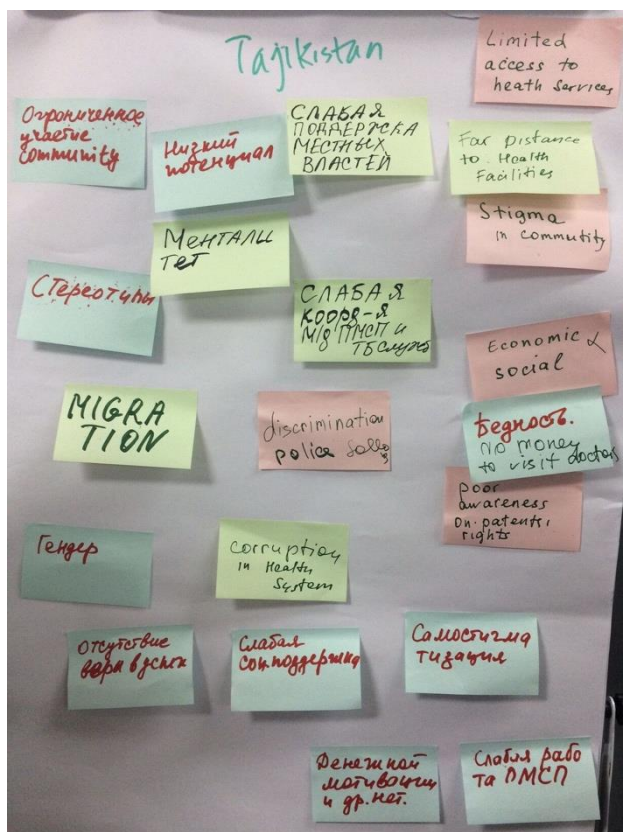 Tajikistan
Limited
access to
heath services
Ограниченное
участие
community
Низкий
потенциал
СЛАБАЯ
ПОДДЕРЖКА
МЕСТНЫХ
ВЛАСТЕЙ
Far Distance
to Health
Facilities
Stigma
in commutity
МЕНТАЛИ
ТЕТ
Стереотипы
СЛАБАЯ
КООРД-Я
М/д ПМСП и
ТБ служб
Economic &
social
MIGRA
TION
discrimination
police
Бедность.
No money
to visit doctors
poor
awareness
on patents,
rights
Гендер
corruption
in Health
System
Отсутствие
веры в успех
Слабая
соц.поддержка
Самостигма
тизация
Денежной
мотивации
и др. нет.
Слабая рабо
та ПМСП